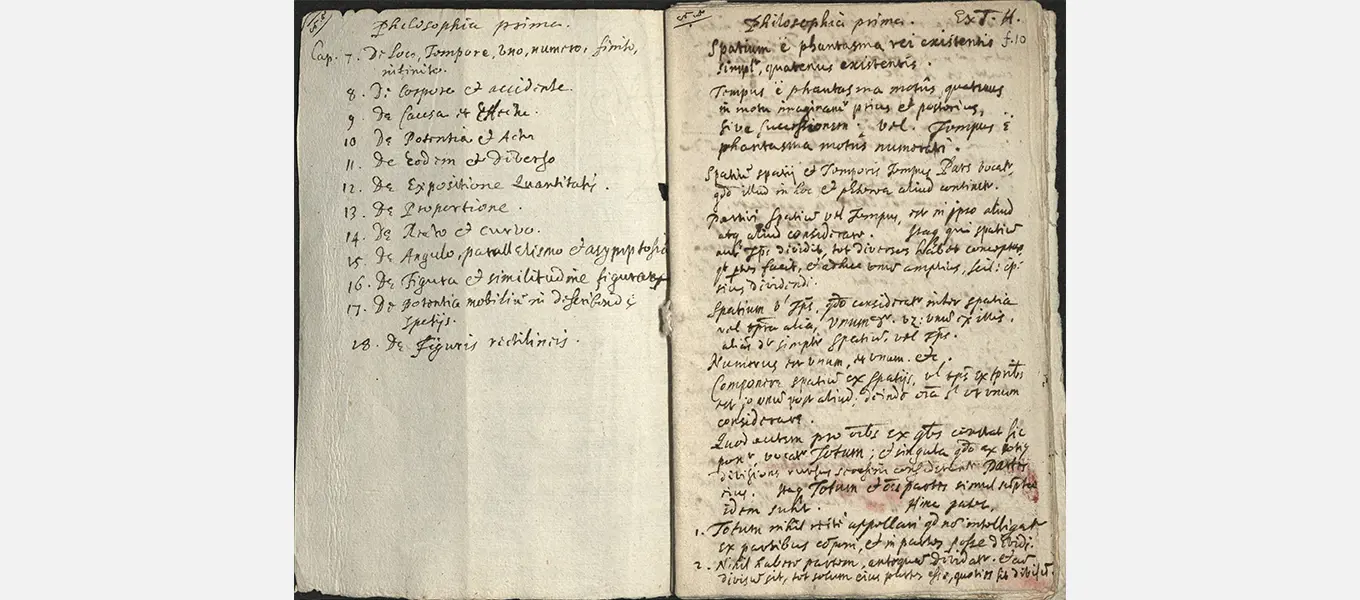 Philosophia prima.
Cap. 7. De Loco, Tempore, Uno, numero, finito,
infinito.
8. De Corpore et accidente.
9. De Causa et Effectu.
10 De Potentia et Actu
11. De Eodem et diverso
12. De Expositione Quantitatis.
13. De Proportione.
14. De Recto et curvo.
15. De Angulo, parallelismo et asymptosia
16. De Figura et similitudine figurarum
17. De potentia mobiliũ in describendis
spatijs.
18. De Figuris rectilineis.
Philosophia prima. Ex T. H.
f. 10
Spatium ē phantasma rei existentis
simplr, quatenus existentis.
Tempus ē phantasma motus, quatenus
in motu imaginamr prius et posterius,
sive successionem; vel. Tempus ē
phantasma motûs numerati.
Spatiũ spatij et Temporis Tempus Pars vocatr,
qdo illud in hoc et aliud continetr.
Partiri Spatiũ vel Tempus, est in ipso aliud
atq aliud considerare. Itaq qui spatiũ
aut Tps dividit, tot diversos habet conceptus
qt ptes facit, et adhuc unũ amplius, scil:
dividendi.
Spatium vl Tps, qdo consideratr inter spatia
vel tpra alia, Unum dr. vz: unũ ex illis.
alias dr simplr Spatiũ, vel Tps.
Numerus est unum, et unum. etc.
Componere spatiũ ex spatijs, vl tps ex tpribs
est unũ post aliud; deinde oia ut unum
considerare.
Quod autem pro oibs ex qbs constat sic
ponr vocatr Totum; et singula qdo ex totius
divisione rursus seorsim considerantr Partes
eius. Itaq Totum et oēs partes simul sũptae
idem sunt. Hinc patet,
1. Totum nihil rectè appellari qd nō intelligatr
ex partibus cōponi, et in partes posse dividi.
2. Nihil habere partem, antequã dividatr. et cũ
divisũ sit, tot solum eius partes esse, quoties sit divisũ.